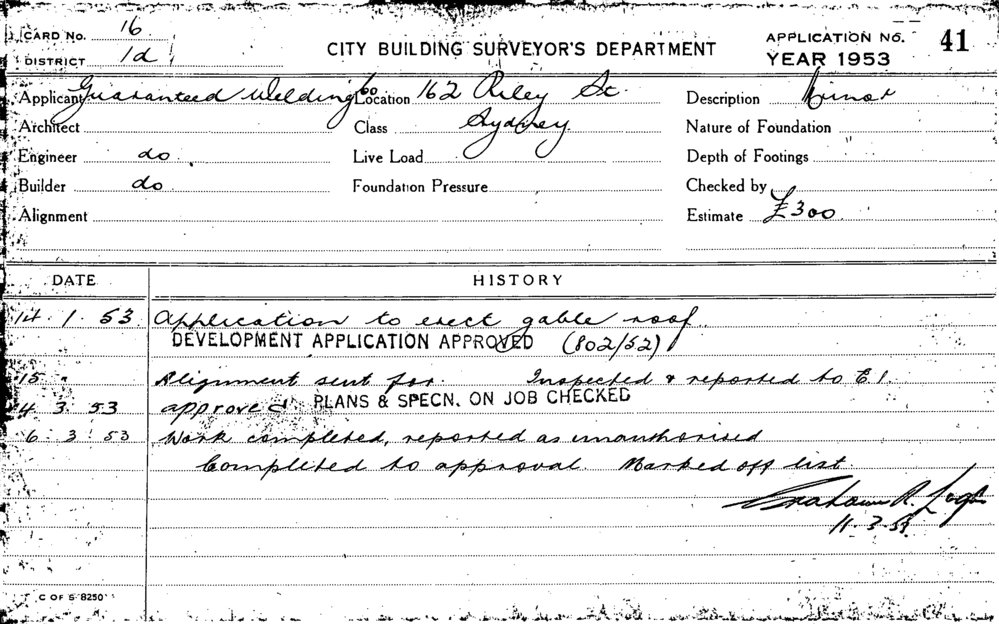 CARD No. 16
DISTRICT 1d
CITY BUILDING SURVEYOR'S DEPARTMENT
APPLICATION No. 41
YEAR 1953
Applicant Guaranteed Welding Co Location 162 Riley St. Description Minor
Architect Class Sydney Nature of Foundation
Engineer do Live Load Depth of Footings
Builder do Foundation Pressure Checked by
Alignment Estimate £300
DATE HISTORY
14 . 1 . 53 Application to erect gable roof
DEVELOPMENT APPLICATION APPROVED (802/52)
15 " Alignment sent for. Inspected & reported to E.I.
4 3 . 53 approved PLANS & SPECN. ON JOB CHECKED
6 . 3 . 53 Work completed, reported as unauthorised
Completed to approval. Marked off list.
Graham R.
11.3.53
C OF S 8250